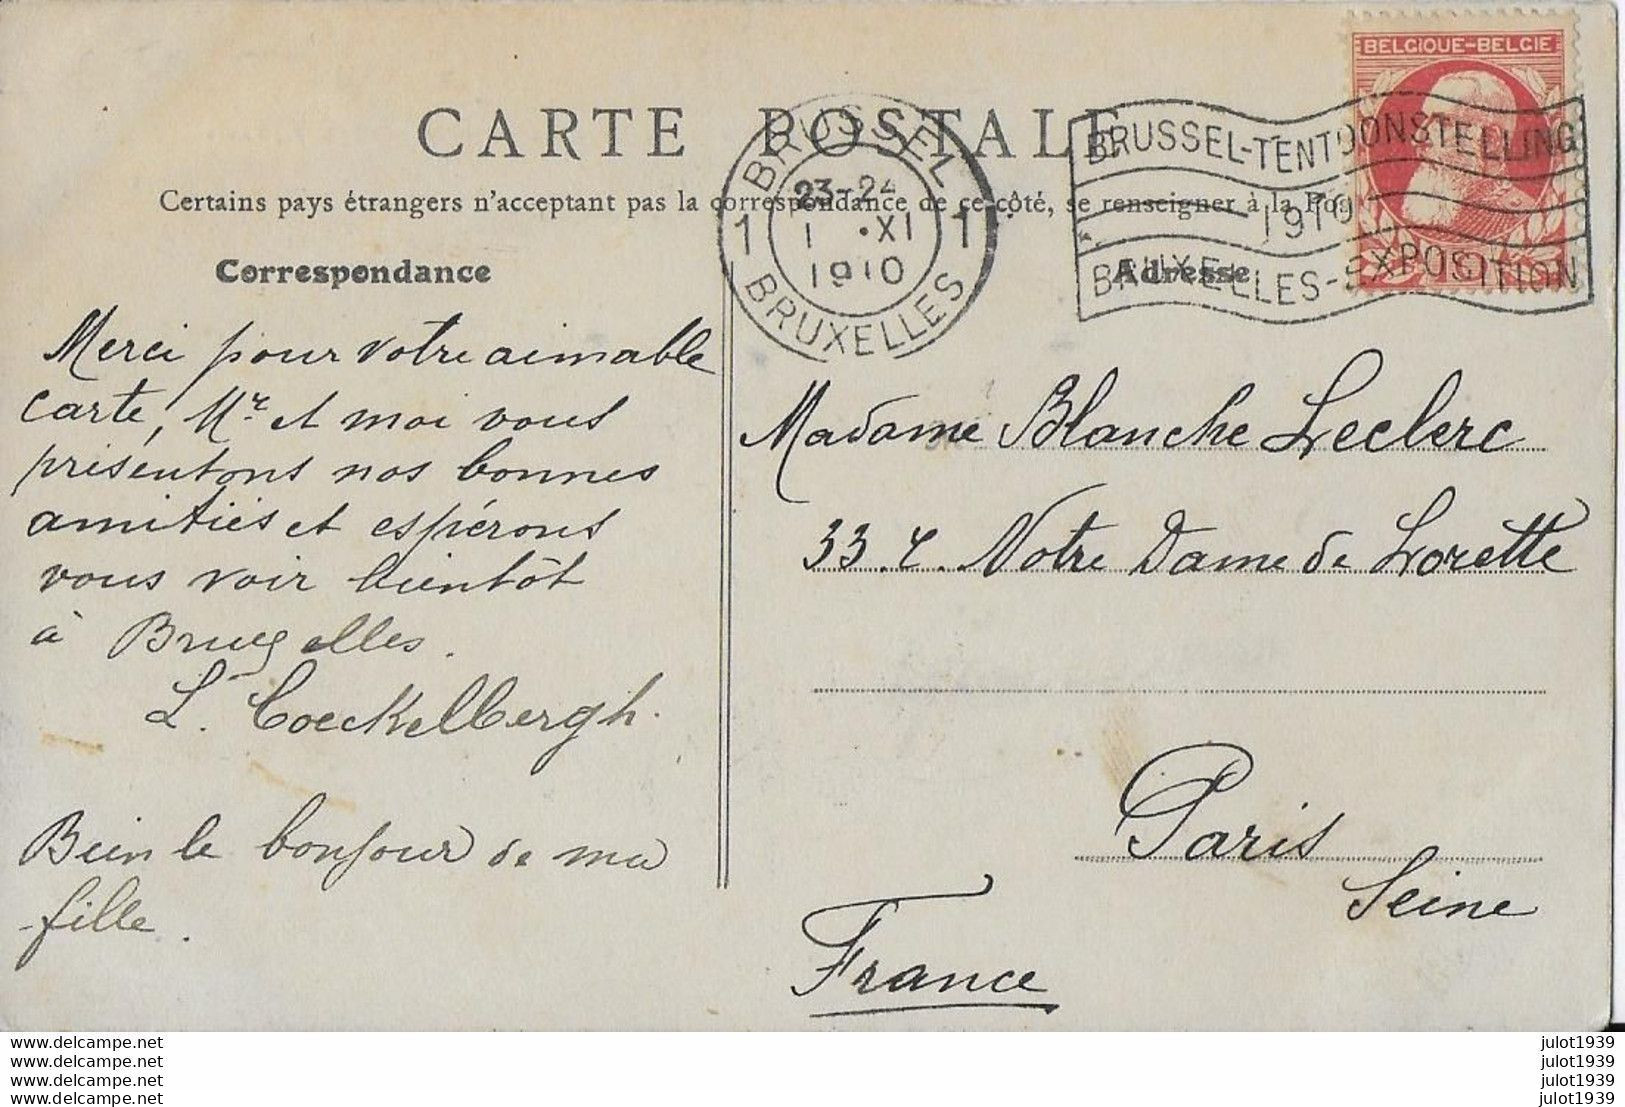 BELGIQUE-BELGIE
CARTE POSTALE
BRUSSEL 1
23-24
1 1 .XI 1
1910
BRUXELLES
BRUSSEL-TENTOONSTELLING
1910
BRUXELLES-EXPOSITION
Certains pays étrangers n'acceptent pas la correspondance de ce côté, se renseigner à la Pos
Correspondance
Adresse
Merci pour votre aimable
carte, Mr et moi vous
présentons nos bonnes
amitiés et espérons
vous voir bientôt
à Bruxelles.
L. Coeckelbergh.
Bien le bonjour de ma
fille.
Madame Blanche Leclerc
33. r. Notre Dame de Lorette
Paris
Seine
France
www.delcampe.net
www.delcampe.net
www.delcampe.net
www.delcampe.net
julot1939
julot1939
julot1939
julot1939